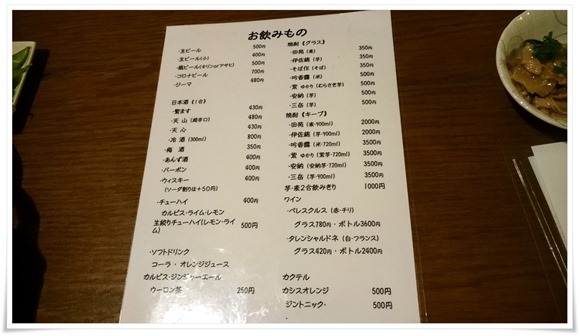 お飲みもの
・生ビール 500円
・生ビール(小) 400円
・瓶ビール(キリンorアサヒ) 500円
・コロナビール 700円
・ジーマ 480円
日本酒《1合》
・繁ます 430円
・天山(超辛口) 480円
・天心 430円
・冷酒(300ml) 800円
・梅酒 350円
・あんず酒 400円
・バーボン 400円
・ウィスキー 400円
(ソーダ割りは+50円)
・チューハイ 400円
カルピス・ライム・レモン
生絞りチューハイ(レモン・ライム) 500円
・ソフトドリンク
コーラ・オレンジジュース
カルピス・ジンジャーエール
ウーロン茶 250円
焼酎《グラス》
・田苑(麦) 350円
・伊佐錦(芋) 350円
・そば作(そば) 350円
・吟香露(米) 500円
・紫ゆかり(むらさき芋) 500円
・安納(芋) 500円
・三岳(芋) 500円
焼酎《キープ》
・田苑(麦・900ml) 2000円
・伊佐錦(芋・900ml) 2000円
・吟香露(米・720ml) 3500円
・紫ゆかり(紫芋・720ml) 3500円
・安納(安納芋・720ml) 3500円
・三岳(芋・900ml) 3500円
芋・麦2合飲みきり 1000円
ワイン
・ペレスクルス(赤・チリ)
グラス780円・ボトル3600円
・タレンシャルドネ(白・フランス)
グラス420円・ボトル2400円
カクテル
カシスオレンジ 500円
ジントニック・ 500円